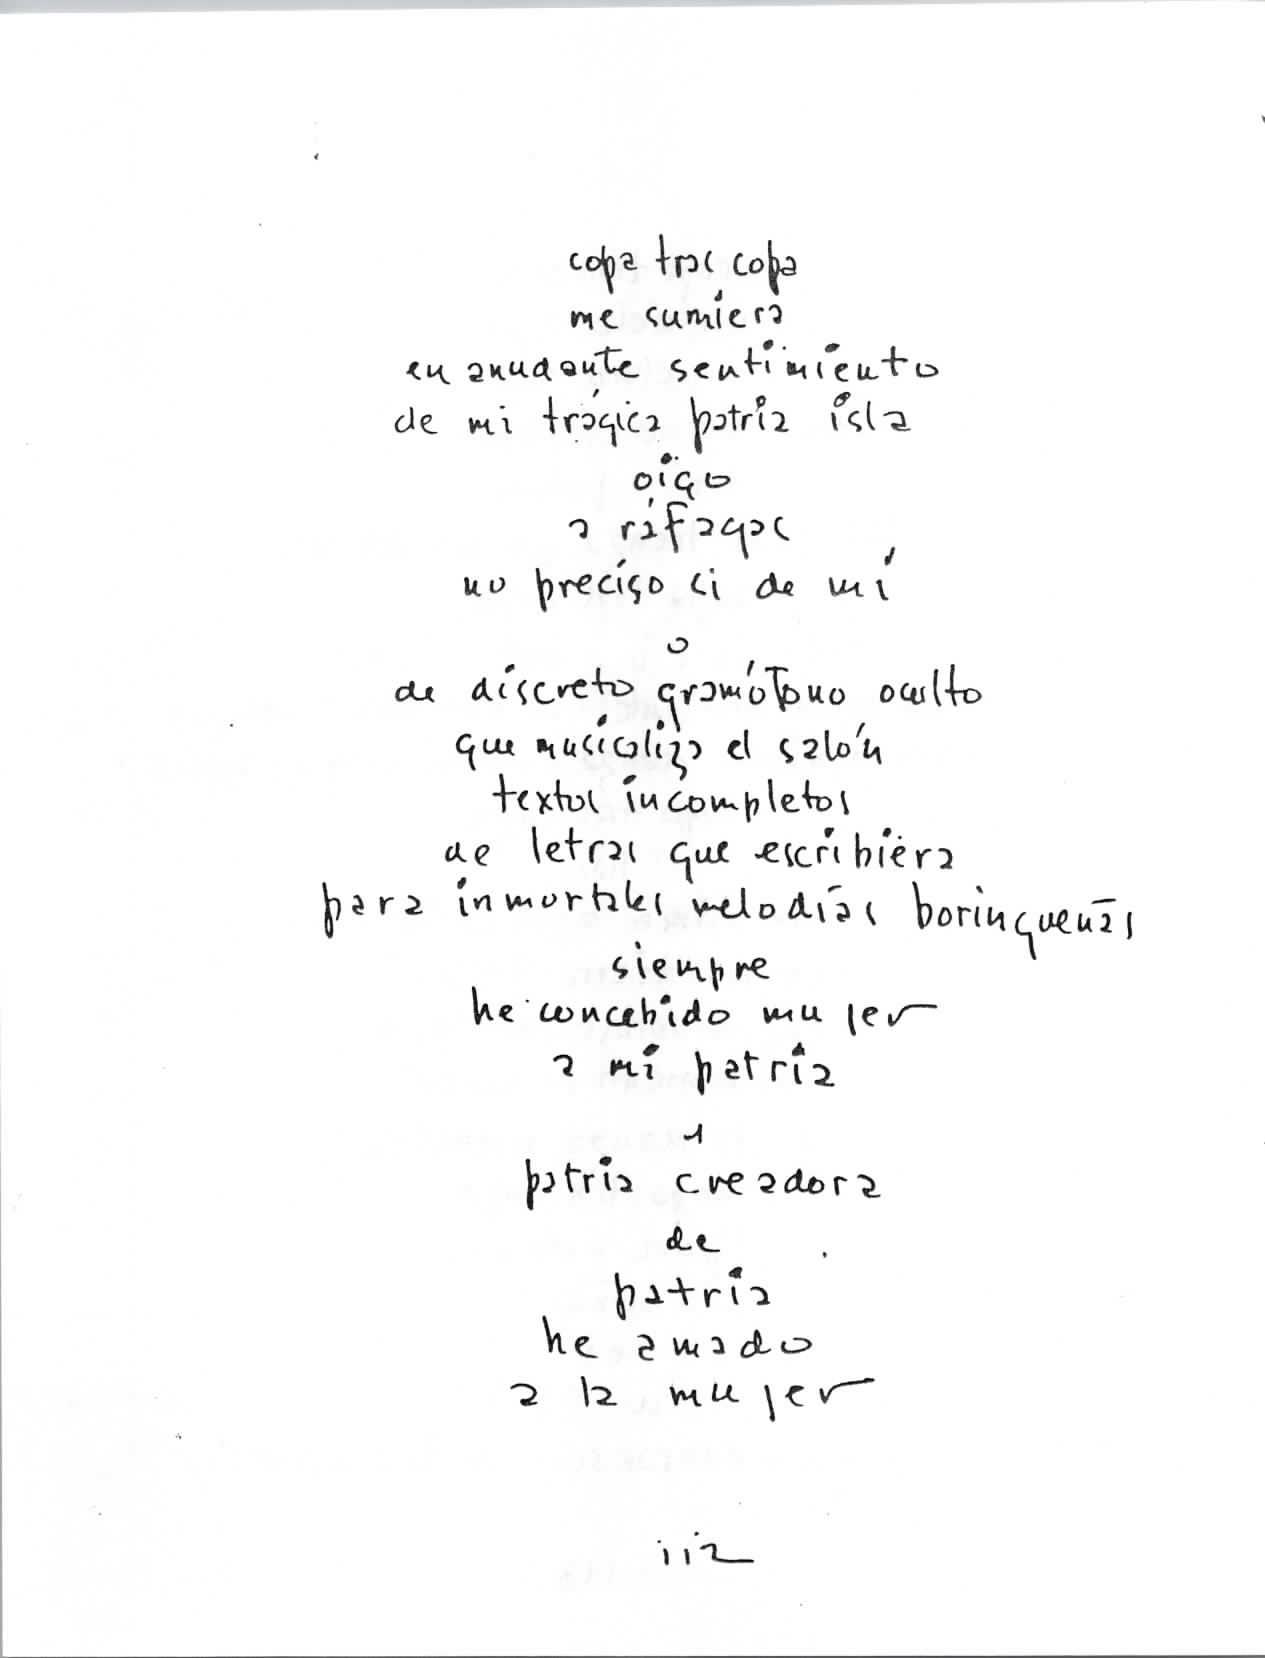 copa tras copa
me sumiera
en anudante sentimiento
de mi trágica patria isla
oigo
a ráfagas
no preciso si de mí
o
de discreto gramófono oculto
que musicaliza el salón
textos incompletos
de letras que escribiera
para inmortales melodías borinqueñas
siempre
he concebido mujer
a mi patria
y
patria creadora
de
patria
he amado
a la mujer
112